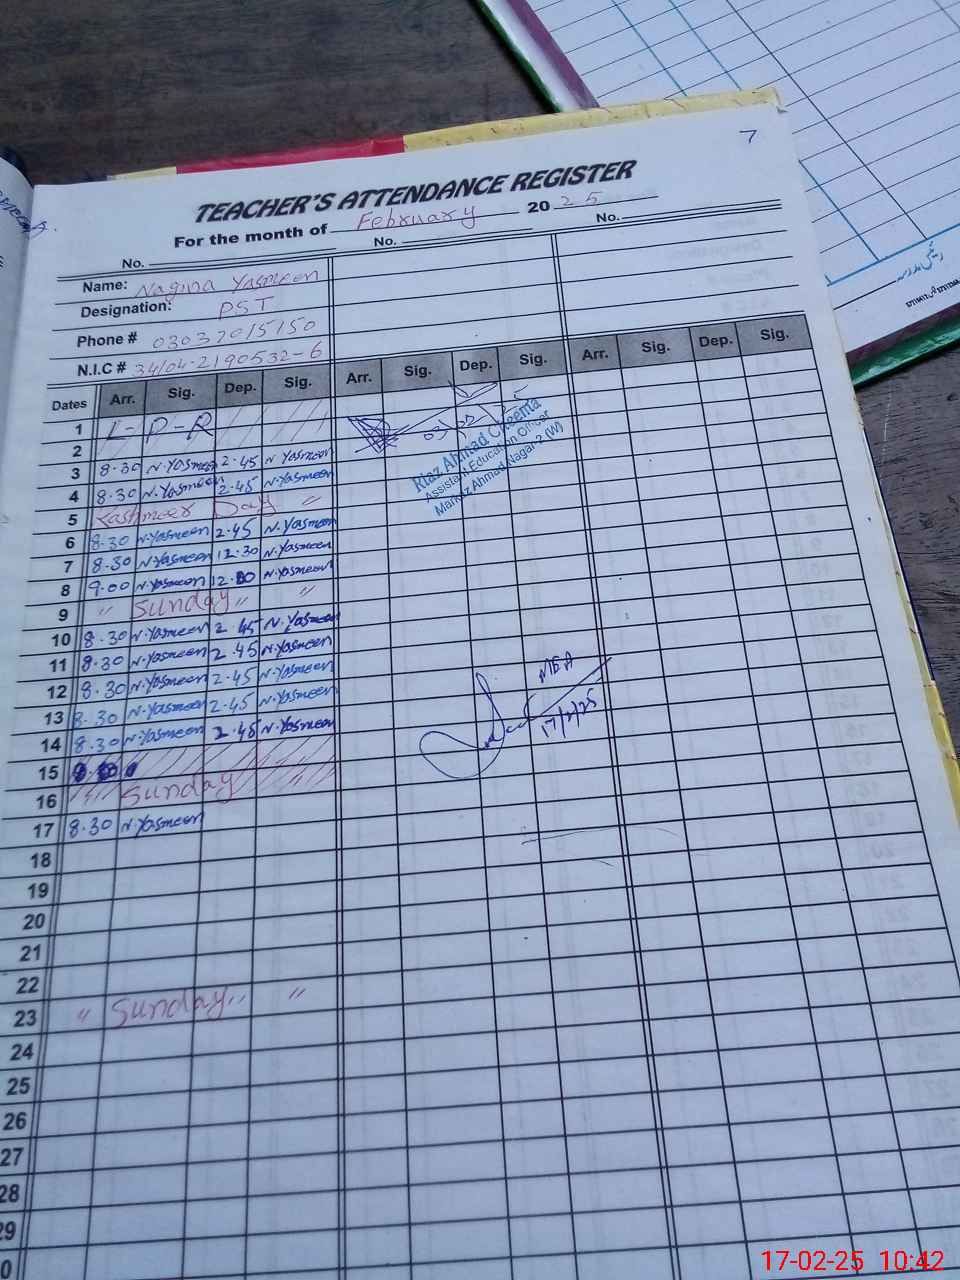 7
TEACHER'S ATTENDANCE REGISTER
For the month of February 20 25
No. No. No.
Name: Nagina Yasmeen
Designation: PST
Phone # 03037015150
N.I.C # 34104-2190532-6
Dates Arr. Sig. Dep. Sig. Arr. Sig. Dep. Sig. Arr. Sig. Dep. Sig.
1 L-P-R
2
3 8.30 N.Yasmeen 2.45 N.Yasmeen
4 8.30 N.Yasmeen 2.45 N.Yasmeen
5 Kashmeer Day "
6 8.30 N.Yasmeen 2.45 N.Yasmeen
7 8.30 N.Yasmeen 12.30 N.Yasmeen
8 9.00 N.Yasmeen 12.00 N.Yasmeen
9 " Sunday " "
10 8.30 N.Yasmeen 2.45 N.Yasmeen
11 8.30 N.Yasmeen 2.45 N.Yasmeen
12 8.30 N.Yasmeen 2.45 N.Yasmeen
13 8.30 N.Yasmeen 2.45 N.Yasmeen
14 8.30 N.Yasmeen 2.45 N.Yasmeen
15
16 Sunday
17 8.30 N.Yasmeen
18
19
20
21
22
23 " Sunday " "
24
25
26
27
28
29
0
Riaz Ahmad Cheema
Assistant Education Officer
Markaz Ahmad Nagar-2 (W)
MEA
17/2/25
17-02-25 10:42